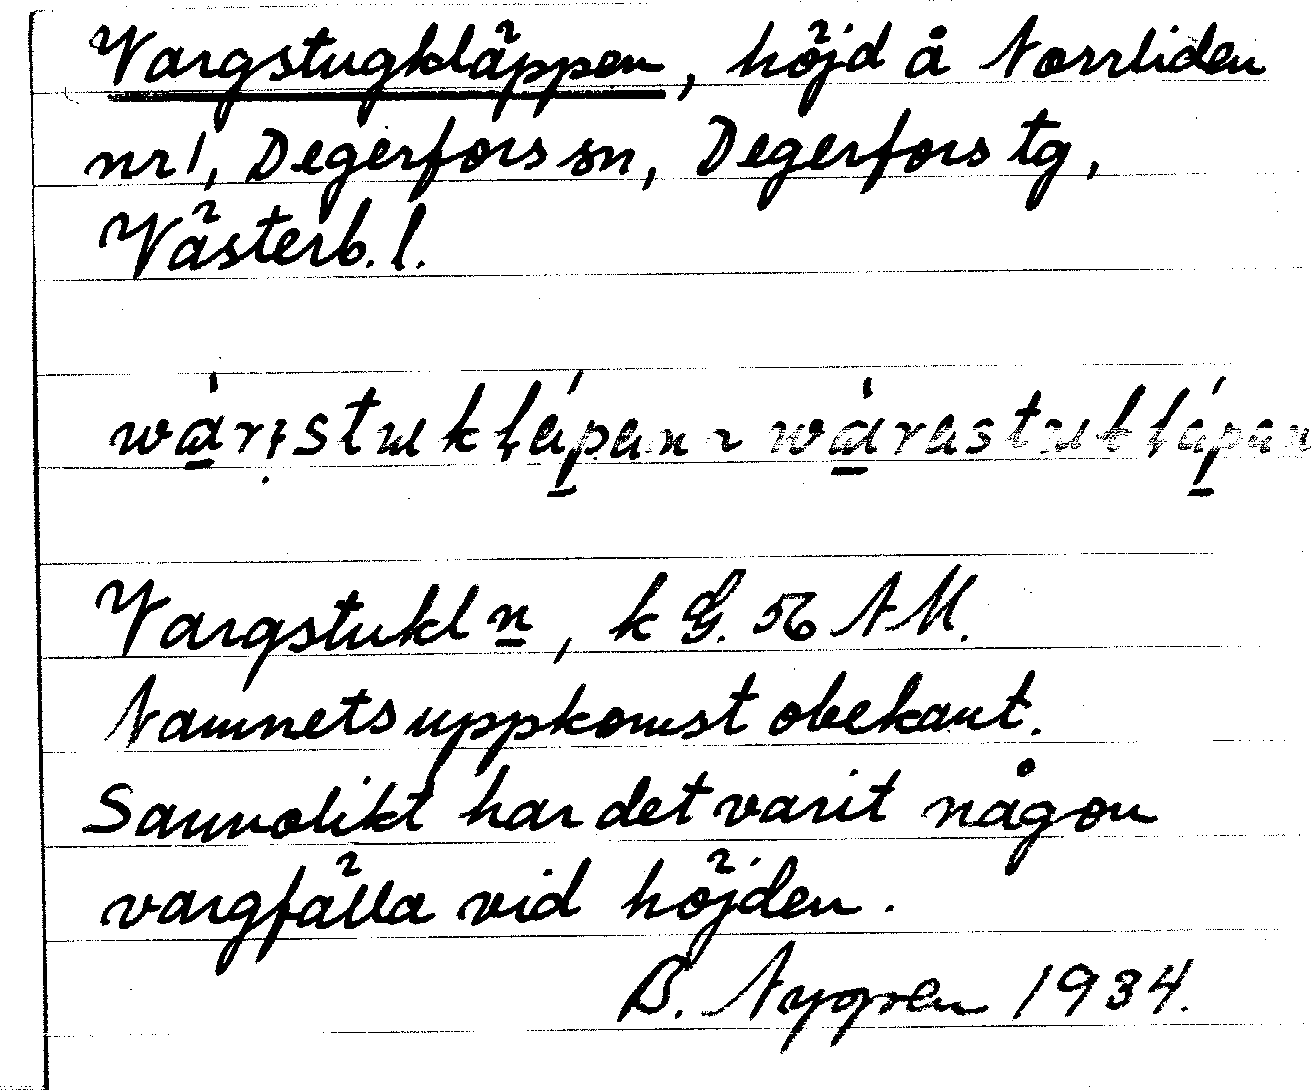 Vargstugkläppen, höjd å Norrliden
nr 1, Degerfors sn, Degerfors tg,
Västerb. l.
Vargstukln, k G. 56 NM.
Namnets uppkomst obekant.
Sannolikt har det varit någon
vargfälla vid höjden.
B. Nygren 1934.